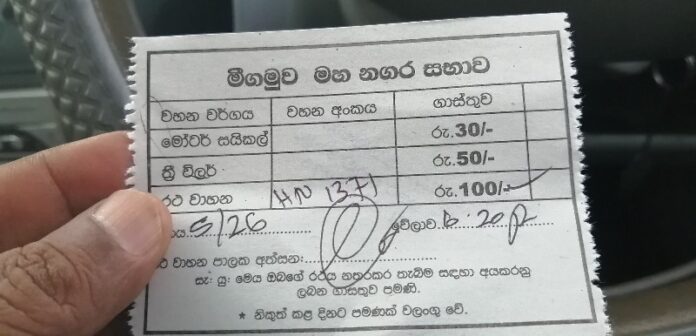 මීගමුව මහ නගර සභාව
වහන වර්ගය වහන අංකය ගාස්තුව
මෝටර් සයිකල් රු. 30/-
ත්‍රී විලර් රු. 50/-
රථ වාහන HN 1371 රු. 100/-
5/26 වේලාව 6.20
රථ වාහන පාලක අත්සන:
සැ: යු: මෙය ඔබගේ රථය නතරකර තැබීම සඳහා අයකරනු
ලබන ගාස්තුව පමණි.
★ නිකුත් කළ දිනට පමණක් වලංගු වේ.